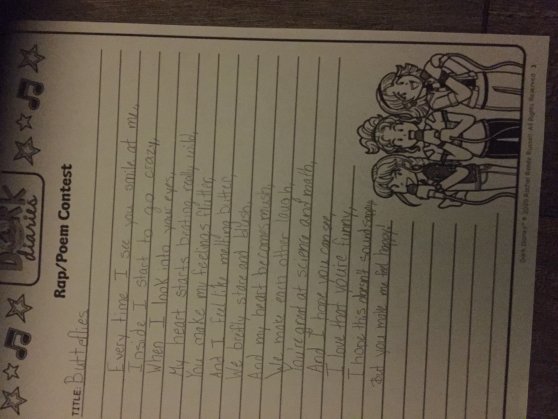 DORK
diaries
Rap/Poem Contest
TITLE: Butterflies
Every time I see you smile at me,
Inside I start to go crazy,
When I look into your eyes,
My heart starts beating really wild,
You make my feelings flutter,
And I feel like melting butter,
We briefly stare and blush,
And my heart becomes mush,
We make each other laugh,
You're great at science and math,
And I hope you can see,
I love that you're funny,
I hope this doesn't sound sappy
But you make me feel happy!
Dork Diaries ® © 2020 Rachel Renée Russell. All Rights Reserved. 3